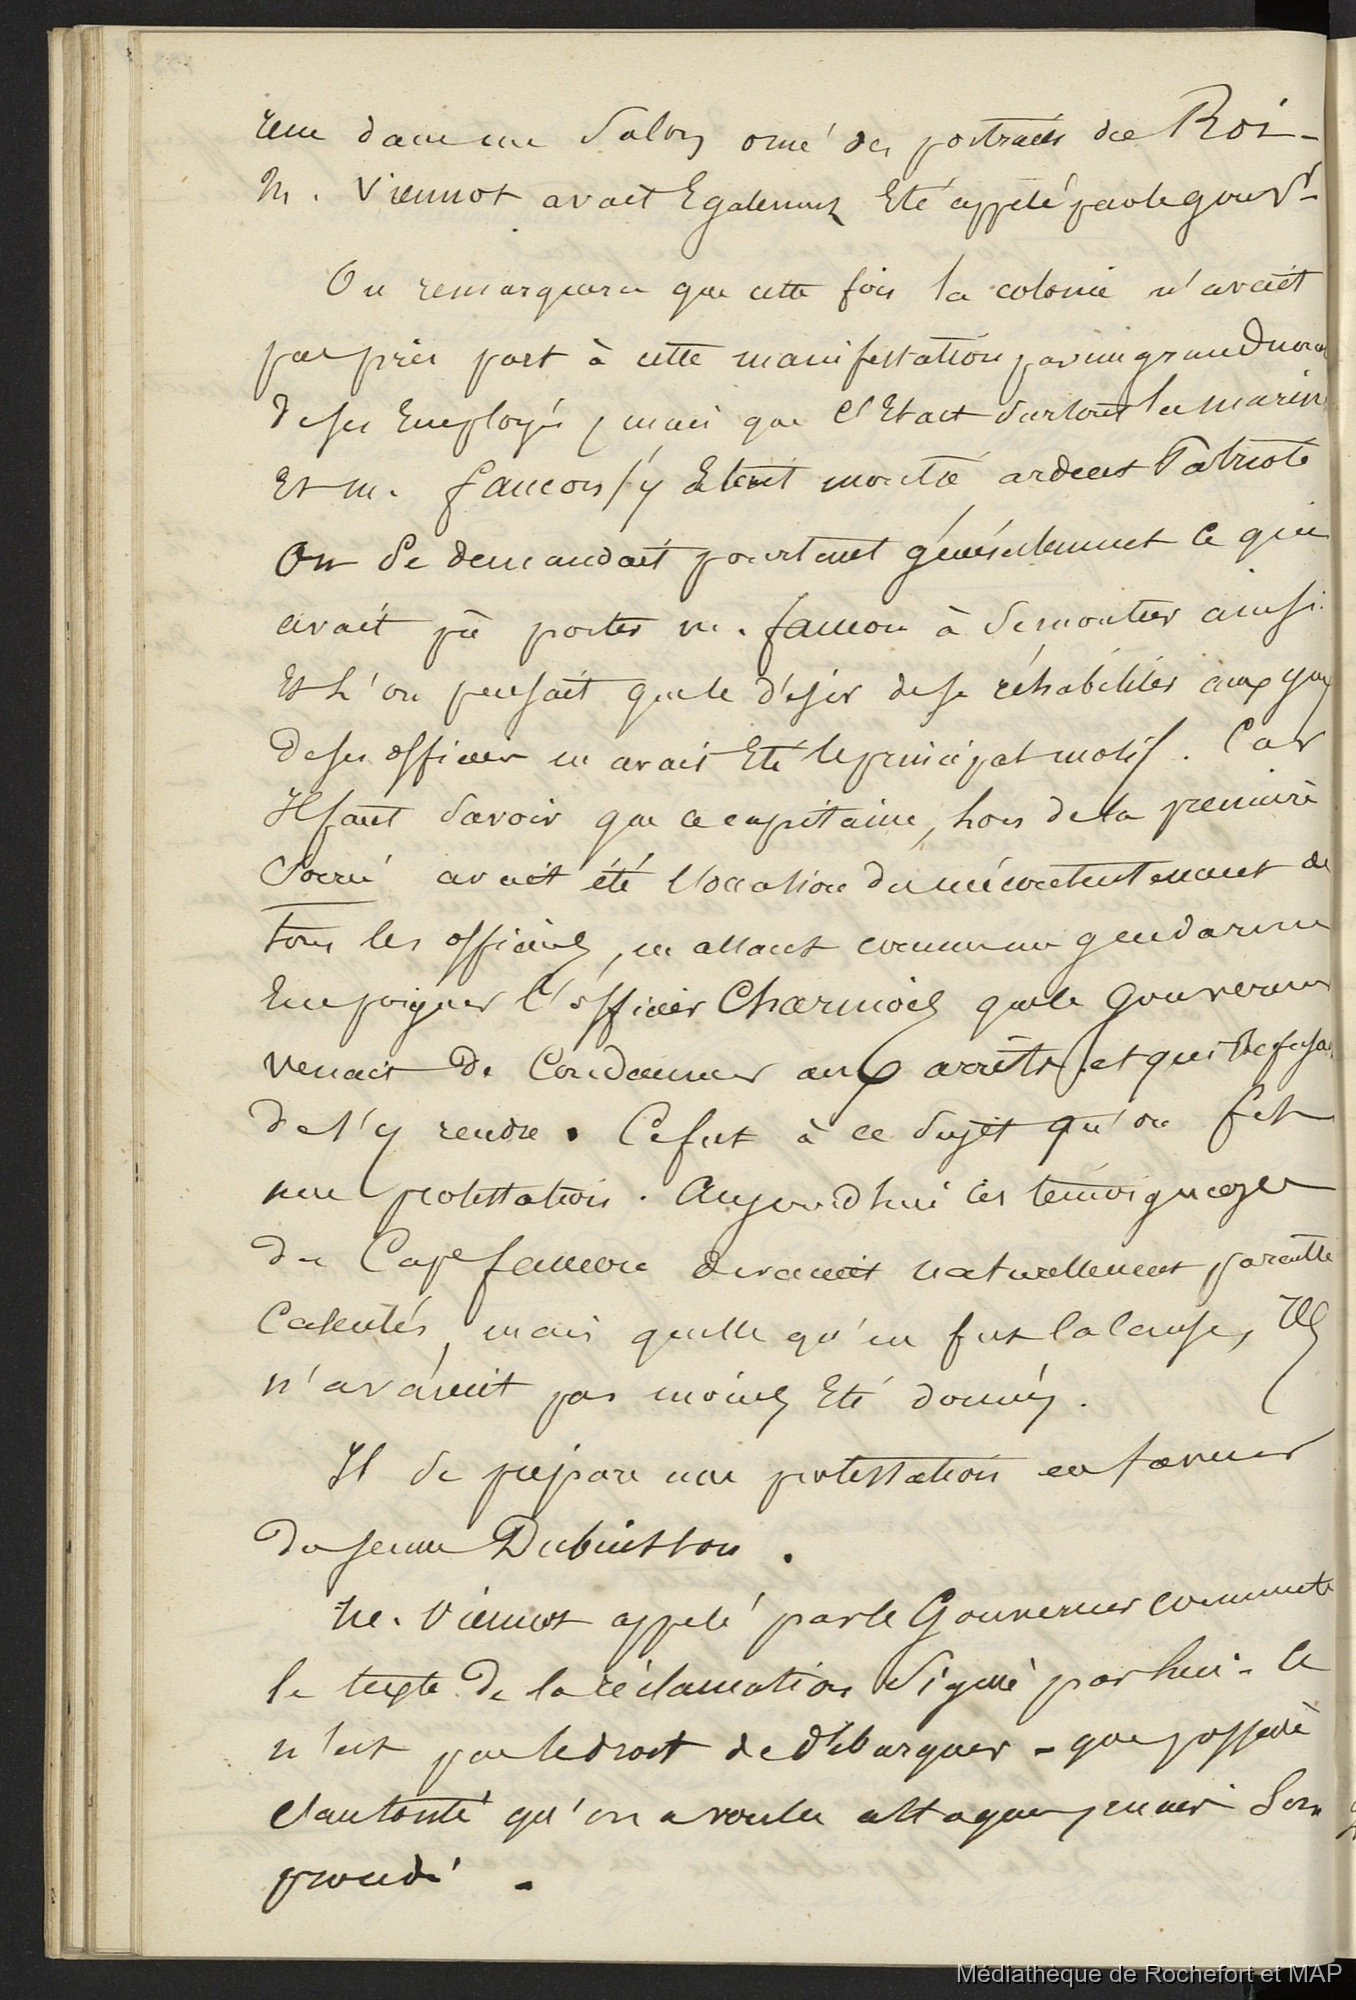 dans un Salon orné des portraits du Roi -
M. Viennot avait Egalement Eté appelé par le gouvr -
On remarquera que cette fois la colonie n'avait
pas pris part à cette manifestation par un grand nom
de ses Employés, mais que c'Etait surtout la marin
Et M. faucon s'y était montré ardent Patriote
On se demandait pourtant généralement ce qui
avait pû porter m. faucon à se montrer ainsi
Et l'on pensait que le désir de se réhabiliter aux yeux
de ses officiers en avait Eté le principal motif. Car
Il faut Savoir que ce capitaine, lors de la premiere
Soirée avait été l'occasion du mécontentement de
tous les officiers, en allant comme un gendarme
Empoigner l'officier Charmois que le Gouverneur
venait de Condamner aux arrêts et qui Refusa
de s'y rendre. Ce fut à ce Sujet qu'on fit
une protestation. Aujourd'hui ces témoignages
du Cape faucon devaient naturellement paraitre
, mais quelle qu'en fut la cause, Ils
n'avaient pas moins Eté donnés.
Il se prépare une protestation en faveur
du jeune Dubuisson.
M. Viennot appelé par le Gouverneur commente
le texte de la réclamation Signée par lui - Ce
n'est pas le droit de débarquer - que possede
l'autorité qu'on a voulu attaquer, mais Son
procédé.
Médiathèque de Rochefort et MAP